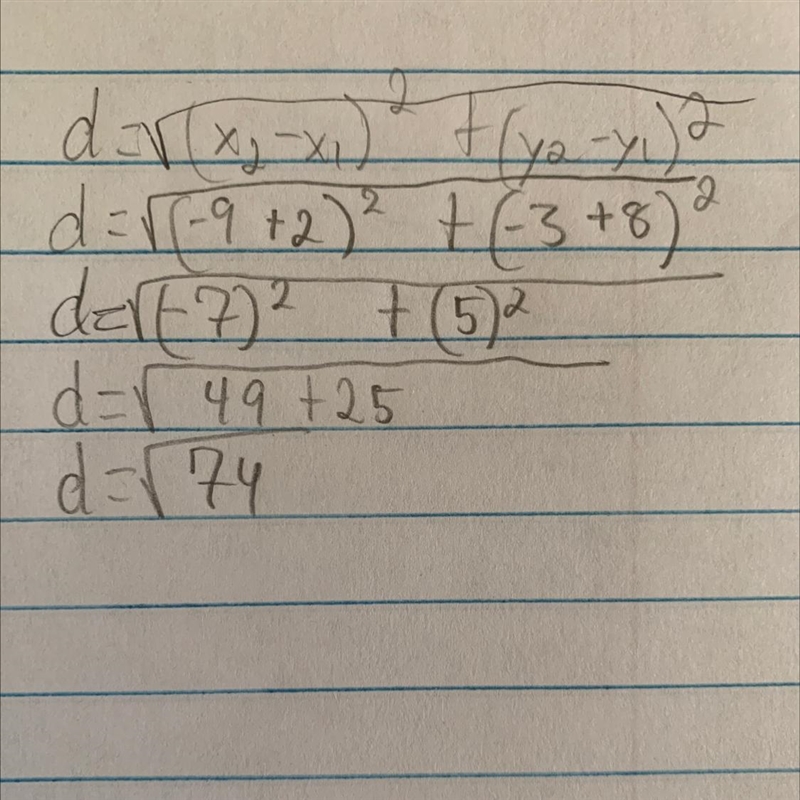 d=√(x₂-x₁)² + (y₂-y₁)²
d=√(-9+2)² + (-3+8)²
d=√(-7)² + (5)²
d=√49+25
d=√74